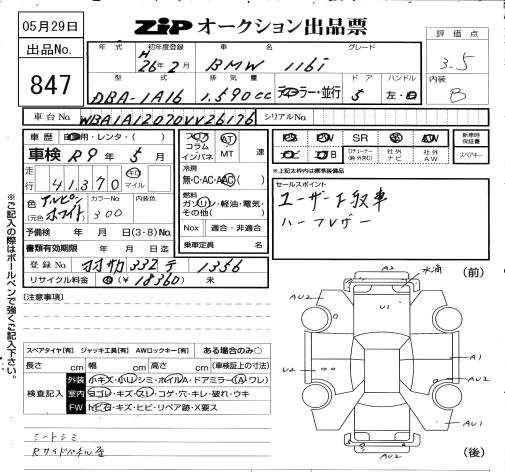 05月29日
ZIP オークション出品票
出品No.
847
評価点
3.5
内装
B
年式 初年度登録 車名 グレード
H
26年2月 BMW 116i
型式 排気量 ドア ハンドル
DBA-1A16 1,590cc ディーラー・並行 5 左・右
車台No. WBA1A12070VV26176 シリアルNo.
車歴 自家用・レンタ・( )
車検 R9年5月
走行 41,370 km マイル
色 アルピンホワイト カラーNo. 300 内装色
(元色 )
予備検 年 月 日(3・8)No.
書類有効期限 年 月 日迄
登録No. 332 テ 1356
リサイクル料金 済 (¥18360) 未
フロア コラム インパネ AT MT 速
冷房
無・C・AC・AAC( )
燃料
ガソリン・軽油・電気・その他( )
Nox 適合・非適合
乗車定員 名
PS PW SR AW
ロクチューナー(純・外含む) 社外ナビ 社外AW
新車時保証書
スペアキー
*上記太枠内は標準装備品
セールスポイント
ユーザー下取車
ハーフレザー
[注意事項]
スペアタイヤ[有] ジャッキ工具[有] AWロックキー[有] ある場合のみ○
長さ cm 幅 cm 高さ cm (車検証上の寸法)
検査記入
外装 小キズ・小凹・シミ・ホイルA・ドアミラー(A・ワレ)
室内 ヨゴレ・キズ・スレ・コゲ・穴・キレ・破れ・ウキ
FW トビ石・キズ・ヒビ・リペア跡・X要ス
シートシミ
Rサイドパネル歪
※ご記入の際はボールペンで強くご記入下さい。
(前)
A2
水滴
AU2
U1
A1
U2
AU2
AU2
(後)